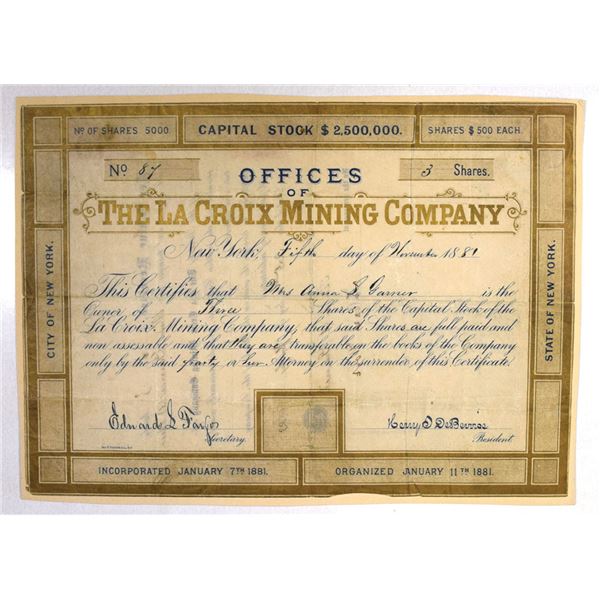 Nº OF SHARES 5000.
CAPITAL STOCK $2,500,000.
SHARES $500 EACH.
Nº 87
3 Shares.
OFFICES
OF
THE LA CROIX MINING COMPANY
New York, Fifth day of November 1881
This Certifies that Mrs Anna S Garner is the
Owner of Three Shares of the Capital Stock of the
La Croix Mining Company, that said Shares are full paid and
non assessable and that they are transferable on the books of the Company
only by the said party or her Attorney on the surrender of this Certificate.
CITY OF NEW YORK.
STATE OF NEW YORK.
Edward L
Secretary.
Henry
President.
INCORPORATED JANUARY 7TH 1881.
ORGANIZED JANUARY 11TH 1881.